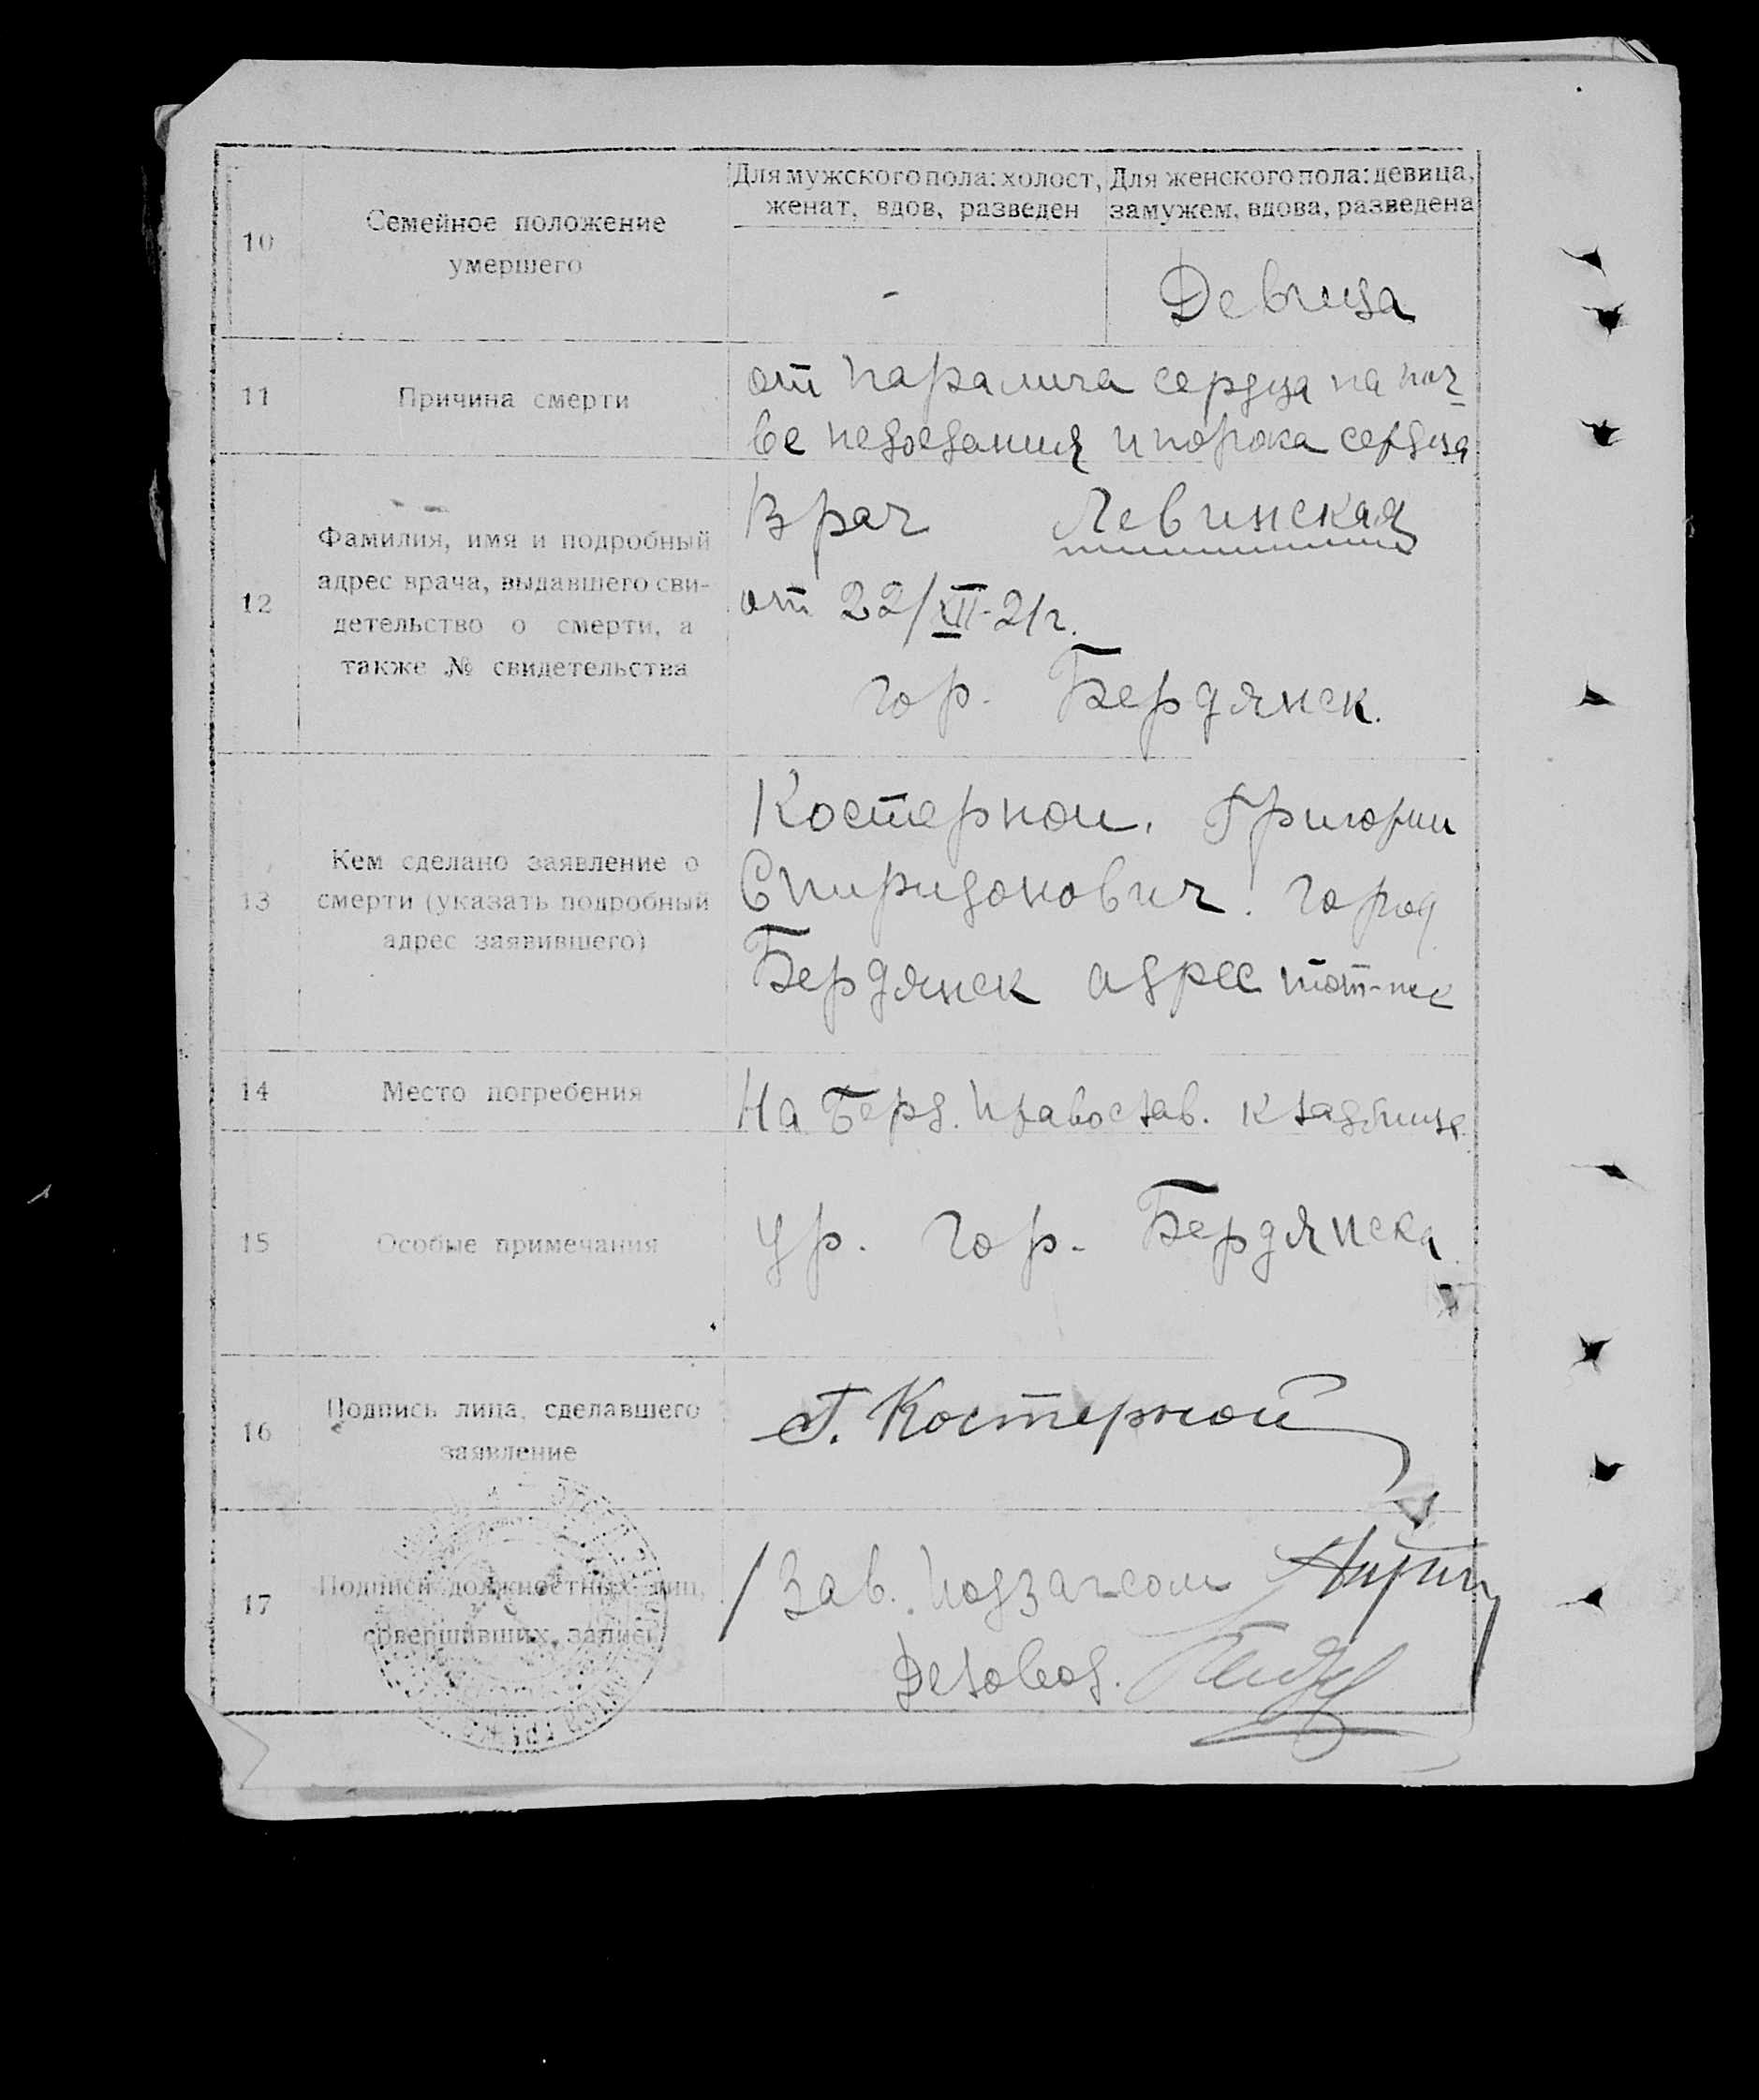 Для мужского пола: холост, женат, вдов, разведен
Для женского пола: девица, замужем, вдова, разведена
10
Семейное положение
умершего
-
Девица
11
Причина смерти
от паралича сердца на поч-
ве недоедания и порока сердца
12
Фамилия, имя и подробный
адрес врача, выдавшего сви-
детельство о смерти, а
также № свидетельства
Врач Левинская
от 22/XII-21г.
гор. Бердянск.
13
Кем сделано заявление о
смерти (указать подробный
адрес заявившего)
Костерной. Григорий
Спиридонович. город
Бердянск адрес тот-же
14
Место погребения
На Берд. Православ. кладбище
15
Особые примечания
Ур. гор. Бердянска
16
Подпись лица, сделавшего
заявление
Г. Костерной
17
Подписи должностных лиц,
совершивших запись
Зав. Подзагсом
Деловод.